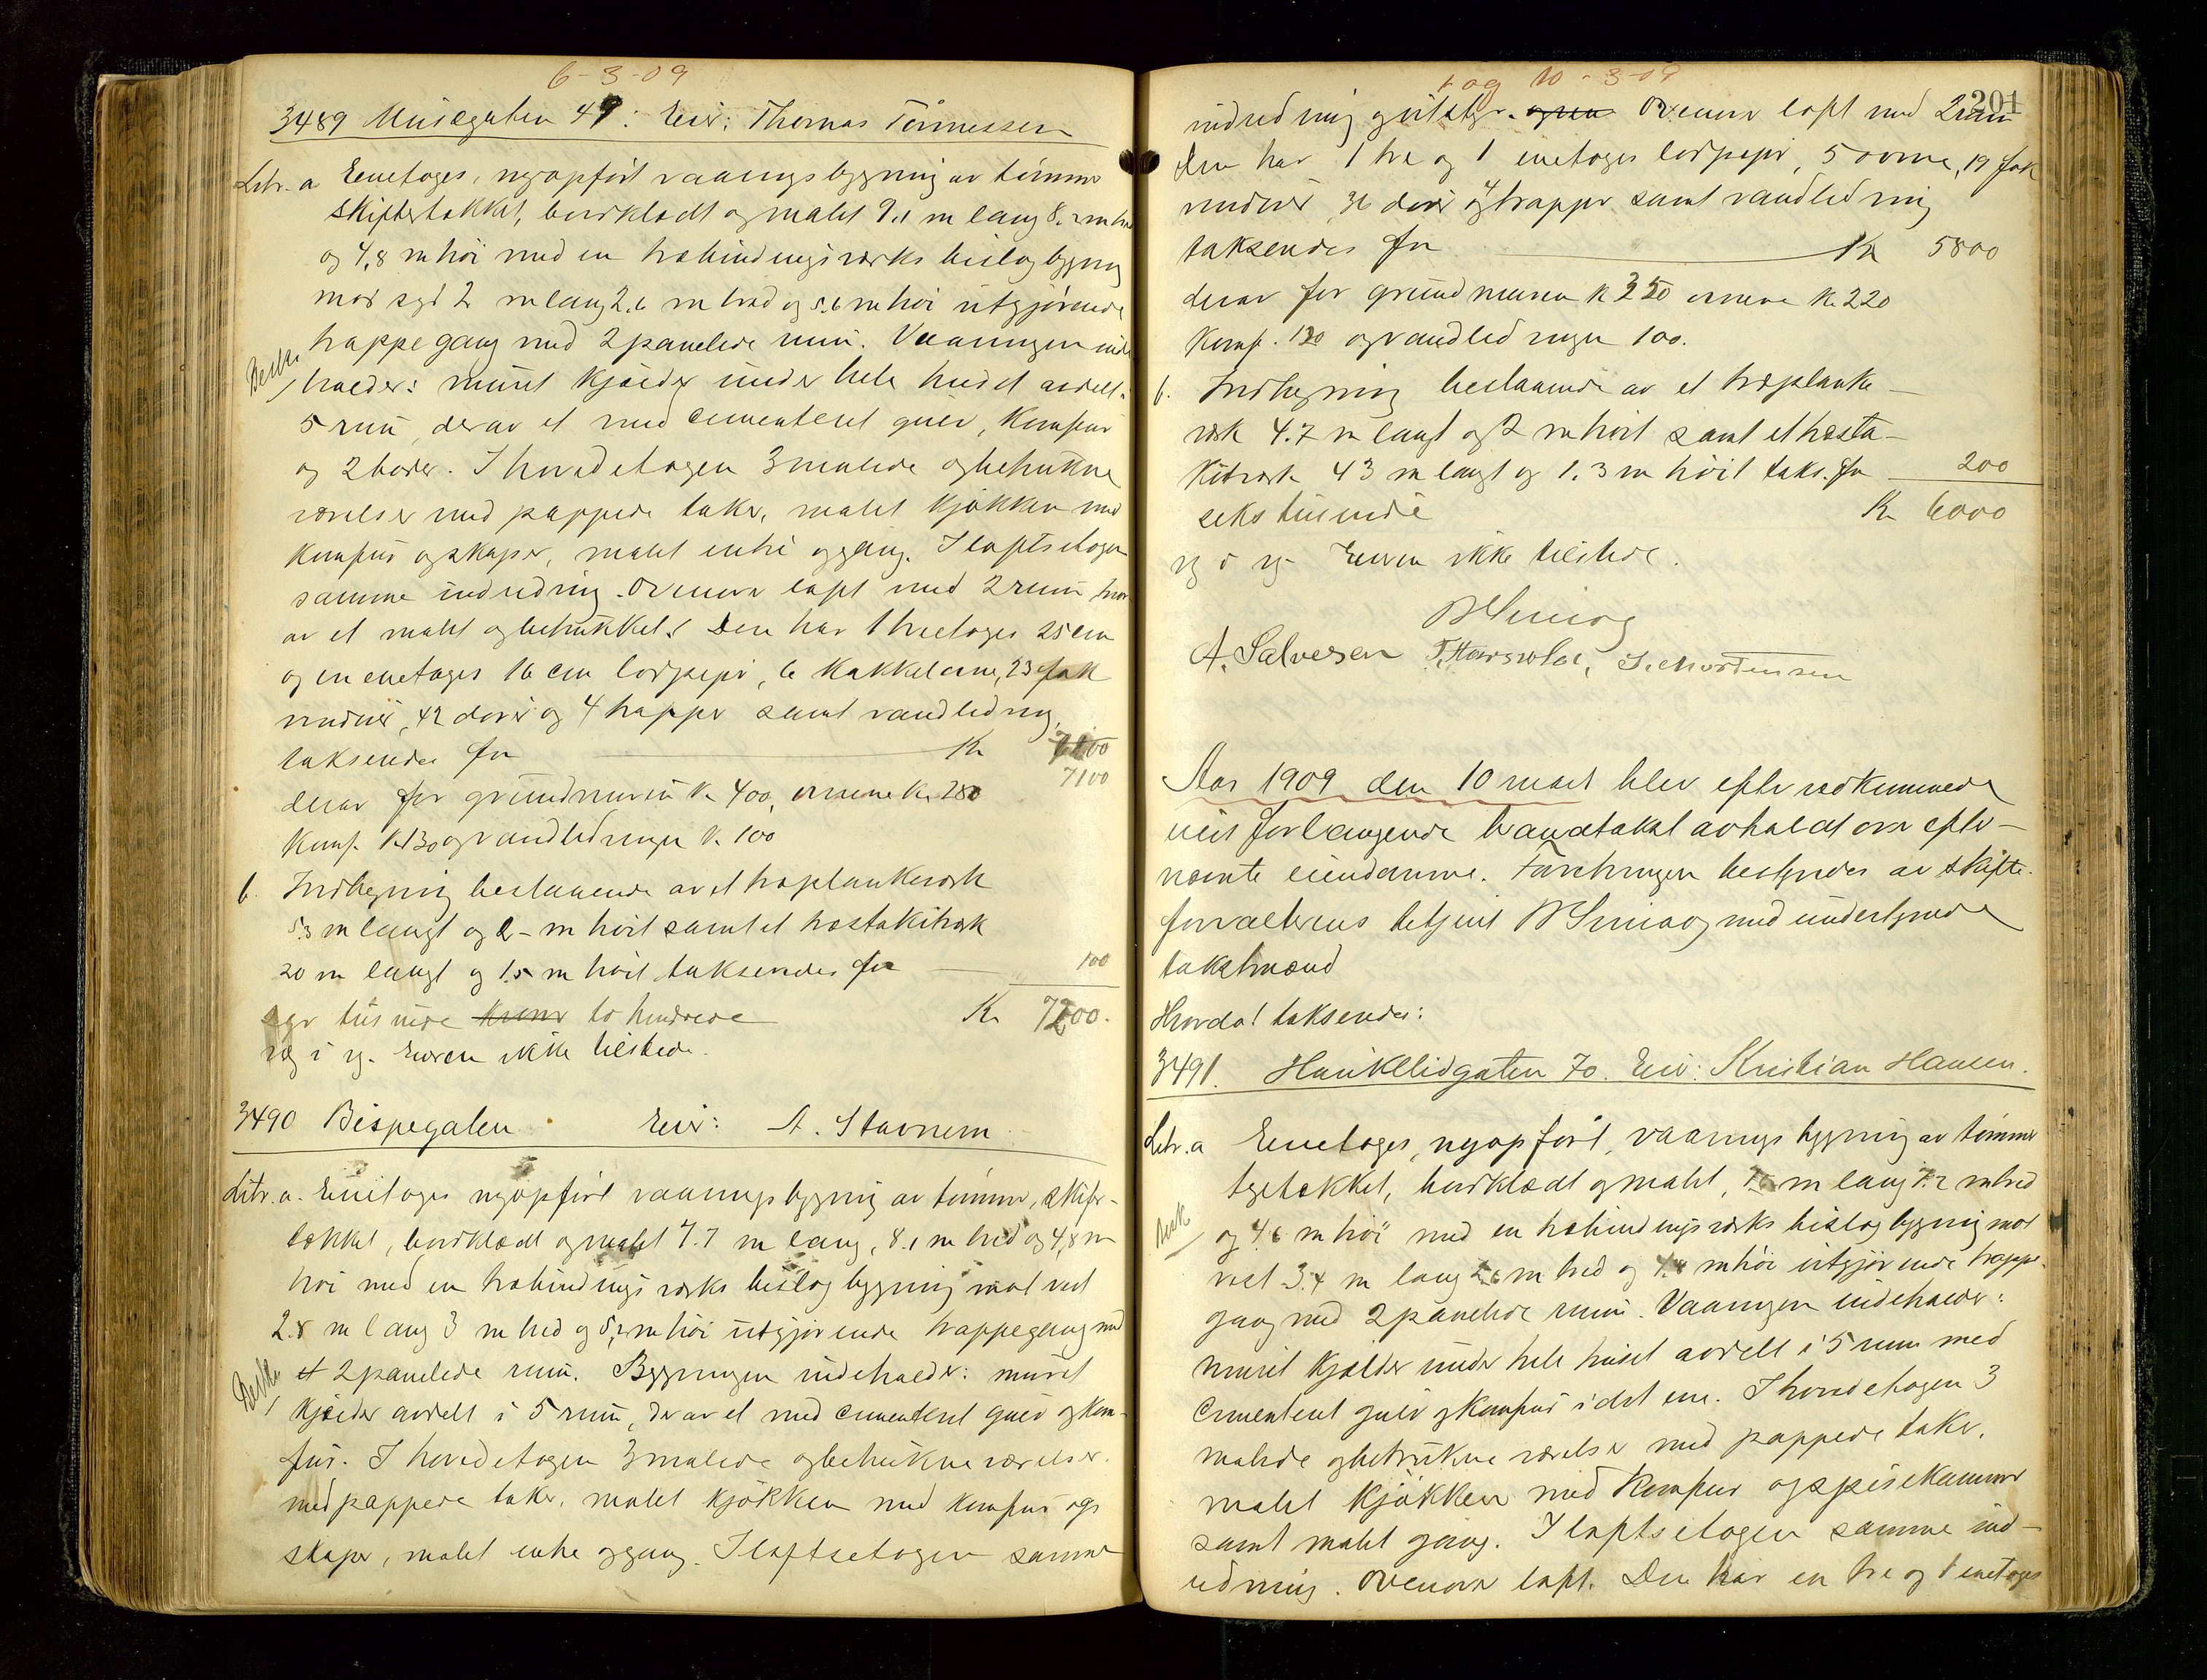 6-3-09
3489 Musegaten 49: Eier: Thomas Tønnessen
Litr. a Enetages, nyopført vaaningsbygning av tømmer
skiftertækket, bordklædt og malet 9.1 m lang 8.2 m bred
og 4,8 m høi med en træbindingsverks bislagbygning
mot syd 2 m lang 2.6 m bred og 5.6 m høi utgjørende
trappegang med 2 panelede rum. Vaaningen inde
Besk. holder: muret kjælder under hele huset avdelt i
5 rum, derav et med cementeret gulv, komfur
og 2 boder. I hovedetagen 3 malede og betrukne
værelser med pappede taker, malet kjøkken med
komfur og skaper, malet entre og gang. I loftsetagen
samme indredning. Ovenover loft med 2 rum hvor
av et malet og betrukket. Den har 1 tretages 25 cm
og en enetages 16 cm lodpipe, 6 kakkelovne, 23 fak
vinduer, 42 dører og 4 trapper samt vandledning,
takseredes for Kr
7100
derav for grundmuren k. 400, ovnene kr. 280
Komf. k. 130 og vandledningen k. 100
b. Indhegning bestaaende av et træplankeverk
5.3 m langt og 2 - m høit samt et træstakitverk
20 m langt og 1.5 m høit takseredes for 100
syv tusinde kroner to hundrede Kr 7200.
veg i veg. Eieren ikke tilstede.
3490 Bispegaten Eier: A. Stavnem
Litr. a. Enetages nyopført vaaningsbygning av tømmer, skifer-
tækket, bordklædt og malet 7.7 m lang, 8.1 m bred og 4,8 m
høi med en træbindingsverks bislagbygning mot vest
2.8 m lang 3 m bred og 5,2 m høi utgjørende trappegang med
Besk. et 2 panelede rum. Bygningen indeholder: muret
kjælder avdelt i 5 rum, derav et med cementeret gulv og kom-
fur. I hovedetagen 3 malede og betrukne værelser
med pappede taker, malet kjøkken med komfur og
skaper, malet entre og gang. I loftsetagen samme
+ og 10-3-09
201
indredning og utstyr. Ovenover loft med 2 rum
Den har 1 tre og 1 enetages lodpipe, 5 ovne, 19 fak
vinduer 36 dører og 4 trapper samt vandledning
takseredes for Kr 5800
derav for grundmuren k 350 ovnene k. 220
Komf. 120 og vandledningen 100.
b. Indhegning bestaaende av et træplanke-
verk 4.7 m langt og 2 m høit samt et træsta-
kitverk 43 m langt og 1.3 m høit taks. for 200
seks tusinde Kr 6000
veg i veg. Eieren ikke tilstede.
A. Salvesen T. Hauswolff, S. Mortensen
Aar 1909 den 10 mars blev efter vedkommende
eiers forlangende brandtakst avholdt over efter-
nævnte eiendomme. Forretningen bestyredes av skifte-
forvalterens betjent med undertegnede
takstmænd
Hvorda! takseredes:
3491. Haukelidgaten 70. Eier: Kristian Hansen.
Litr. a Enetages, nyopført, vaaningsbygning av tømmer
teglækket, bordklædt og malet, 7.6 m lang 7.2 m bred
Besk og 4.6 m høi med en træbindingsverks bislagbygning mot
vest 3.4 m lang 2.6 m bred og 4.8 m høi utgjørende trappe-
gang med 2 panelede rum. Vaaningen indeholder:
muret kjælder under hele huset avdelt i 5 rum med
cementeret gulv og komfur i det ene. I hovedetagen 3
malede og betrukne værelser med pappede taker,
malet kjøkken med komfur og spisekammer
samt malet gang. I loftsetagen samme ind-
redning. Ovenover loft. Den har en tre og 1 enetages